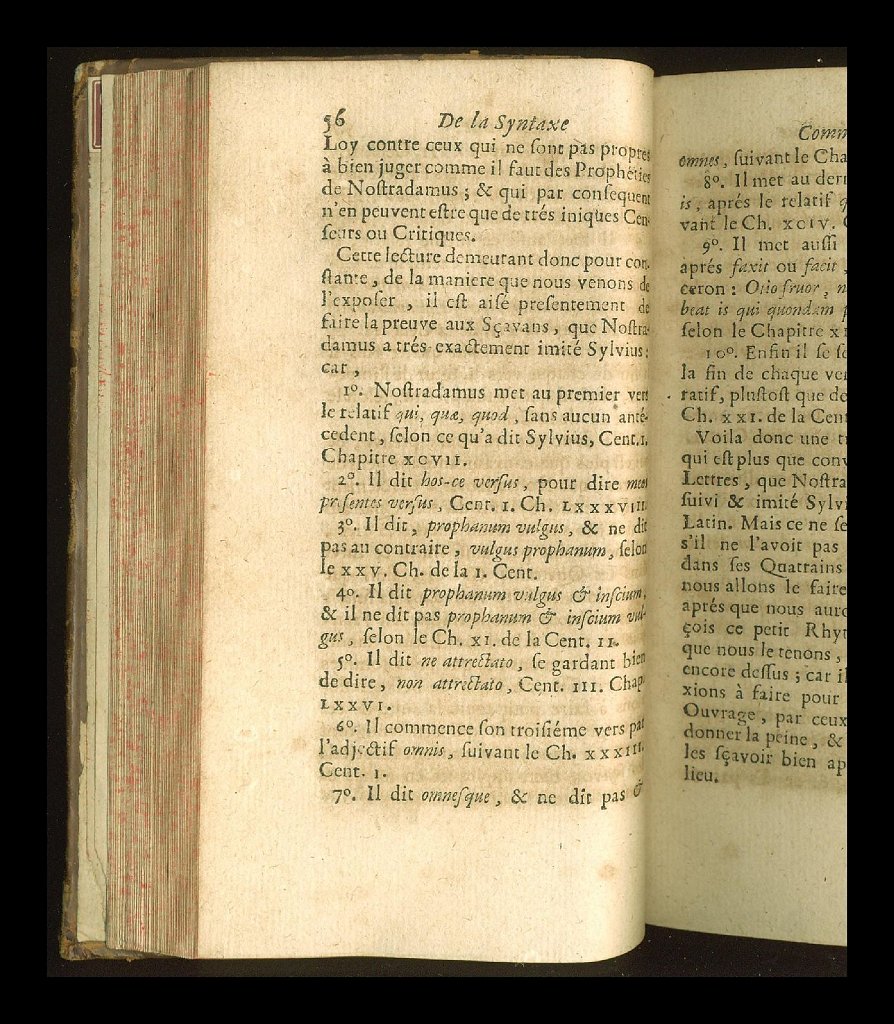 56 De la Syntaxe
Loy contre ceux qui ne ſont pas propres
à bien juger comme il faut des Propheties
de Noſtradamus ; & qui par conſequent
n'en peuvent eſtre que de trés iniques Cen
ſeurs ou Critiques.
Cette lecture demeurant donc pour con
ſtante , de la maniere que nous venons de
l'expoſer , il eſt aiſé preſentement de
faire la preuve aux Sçavans , que Noſtra-
damus a trés-exactement imité Sylvius ;
car ,
1º. Noſtradamus met au premier vers
le relatif qui, quæ, quod , ſans aucun anté-
cedent , ſelon ce qu'a dit Sylvius, Cent. 1.
Chapitre XCVII.
2º. Il dit hos-ce verſus , pour dire meos
preſentes verſus , Cent. I. Ch. LXXXVIII.
3º. Il dit , prophanum vulgus , & ne dit
pas au contraire , vulgus prophanum , ſelon
le XXV. Ch. de la I. Cent.
4o. Il dit prophanum vulgus & inſcium,
& il ne dit pas prophanum & inſcium vul-
gus , ſelon le Ch. XI. de la Cent. II.
5º. Il dit ne attrectato , ſe gardant bien
de dire , non attrectato , Cent. III. Chap.
LXXVI.
6º. Il commence ſon troiſiéme vers par
l'adjectif omnis , ſuivant le Ch. XXXIII.
Cent. I.
7º. Il dit omneſque , & ne dit pas &
omnes , ſuivant le Cha
8º. Il met au der
is , aprés le relatif
vant le Ch. XCIV.
9º. Il met auſſi
aprés faxit ou facit ,
ceron : Otio fruor , n
beat is qui quondam p
ſelon le Chapitre X
10º. Enfin il ſe
la fin de chaque ver
ratif, pluſtoſt que de
Ch. XXI. de la Cent
Voila donc une
qui eſt plus que conv
Lettres , que Noſtra
ſuivi & imité Sylvi
Latin. Mais ce ne ſe
s'il ne l'avoit pas
dans ſes Quatrains
nous allons le faire
aprés que nous auro
çois ce petit Rhyt
que nous le tenons ,
encore deſſus ; car il
xions à faire pour
Ouvrage , par ceux
donner la peine , &
les ſçavoir bien ap
lieu.